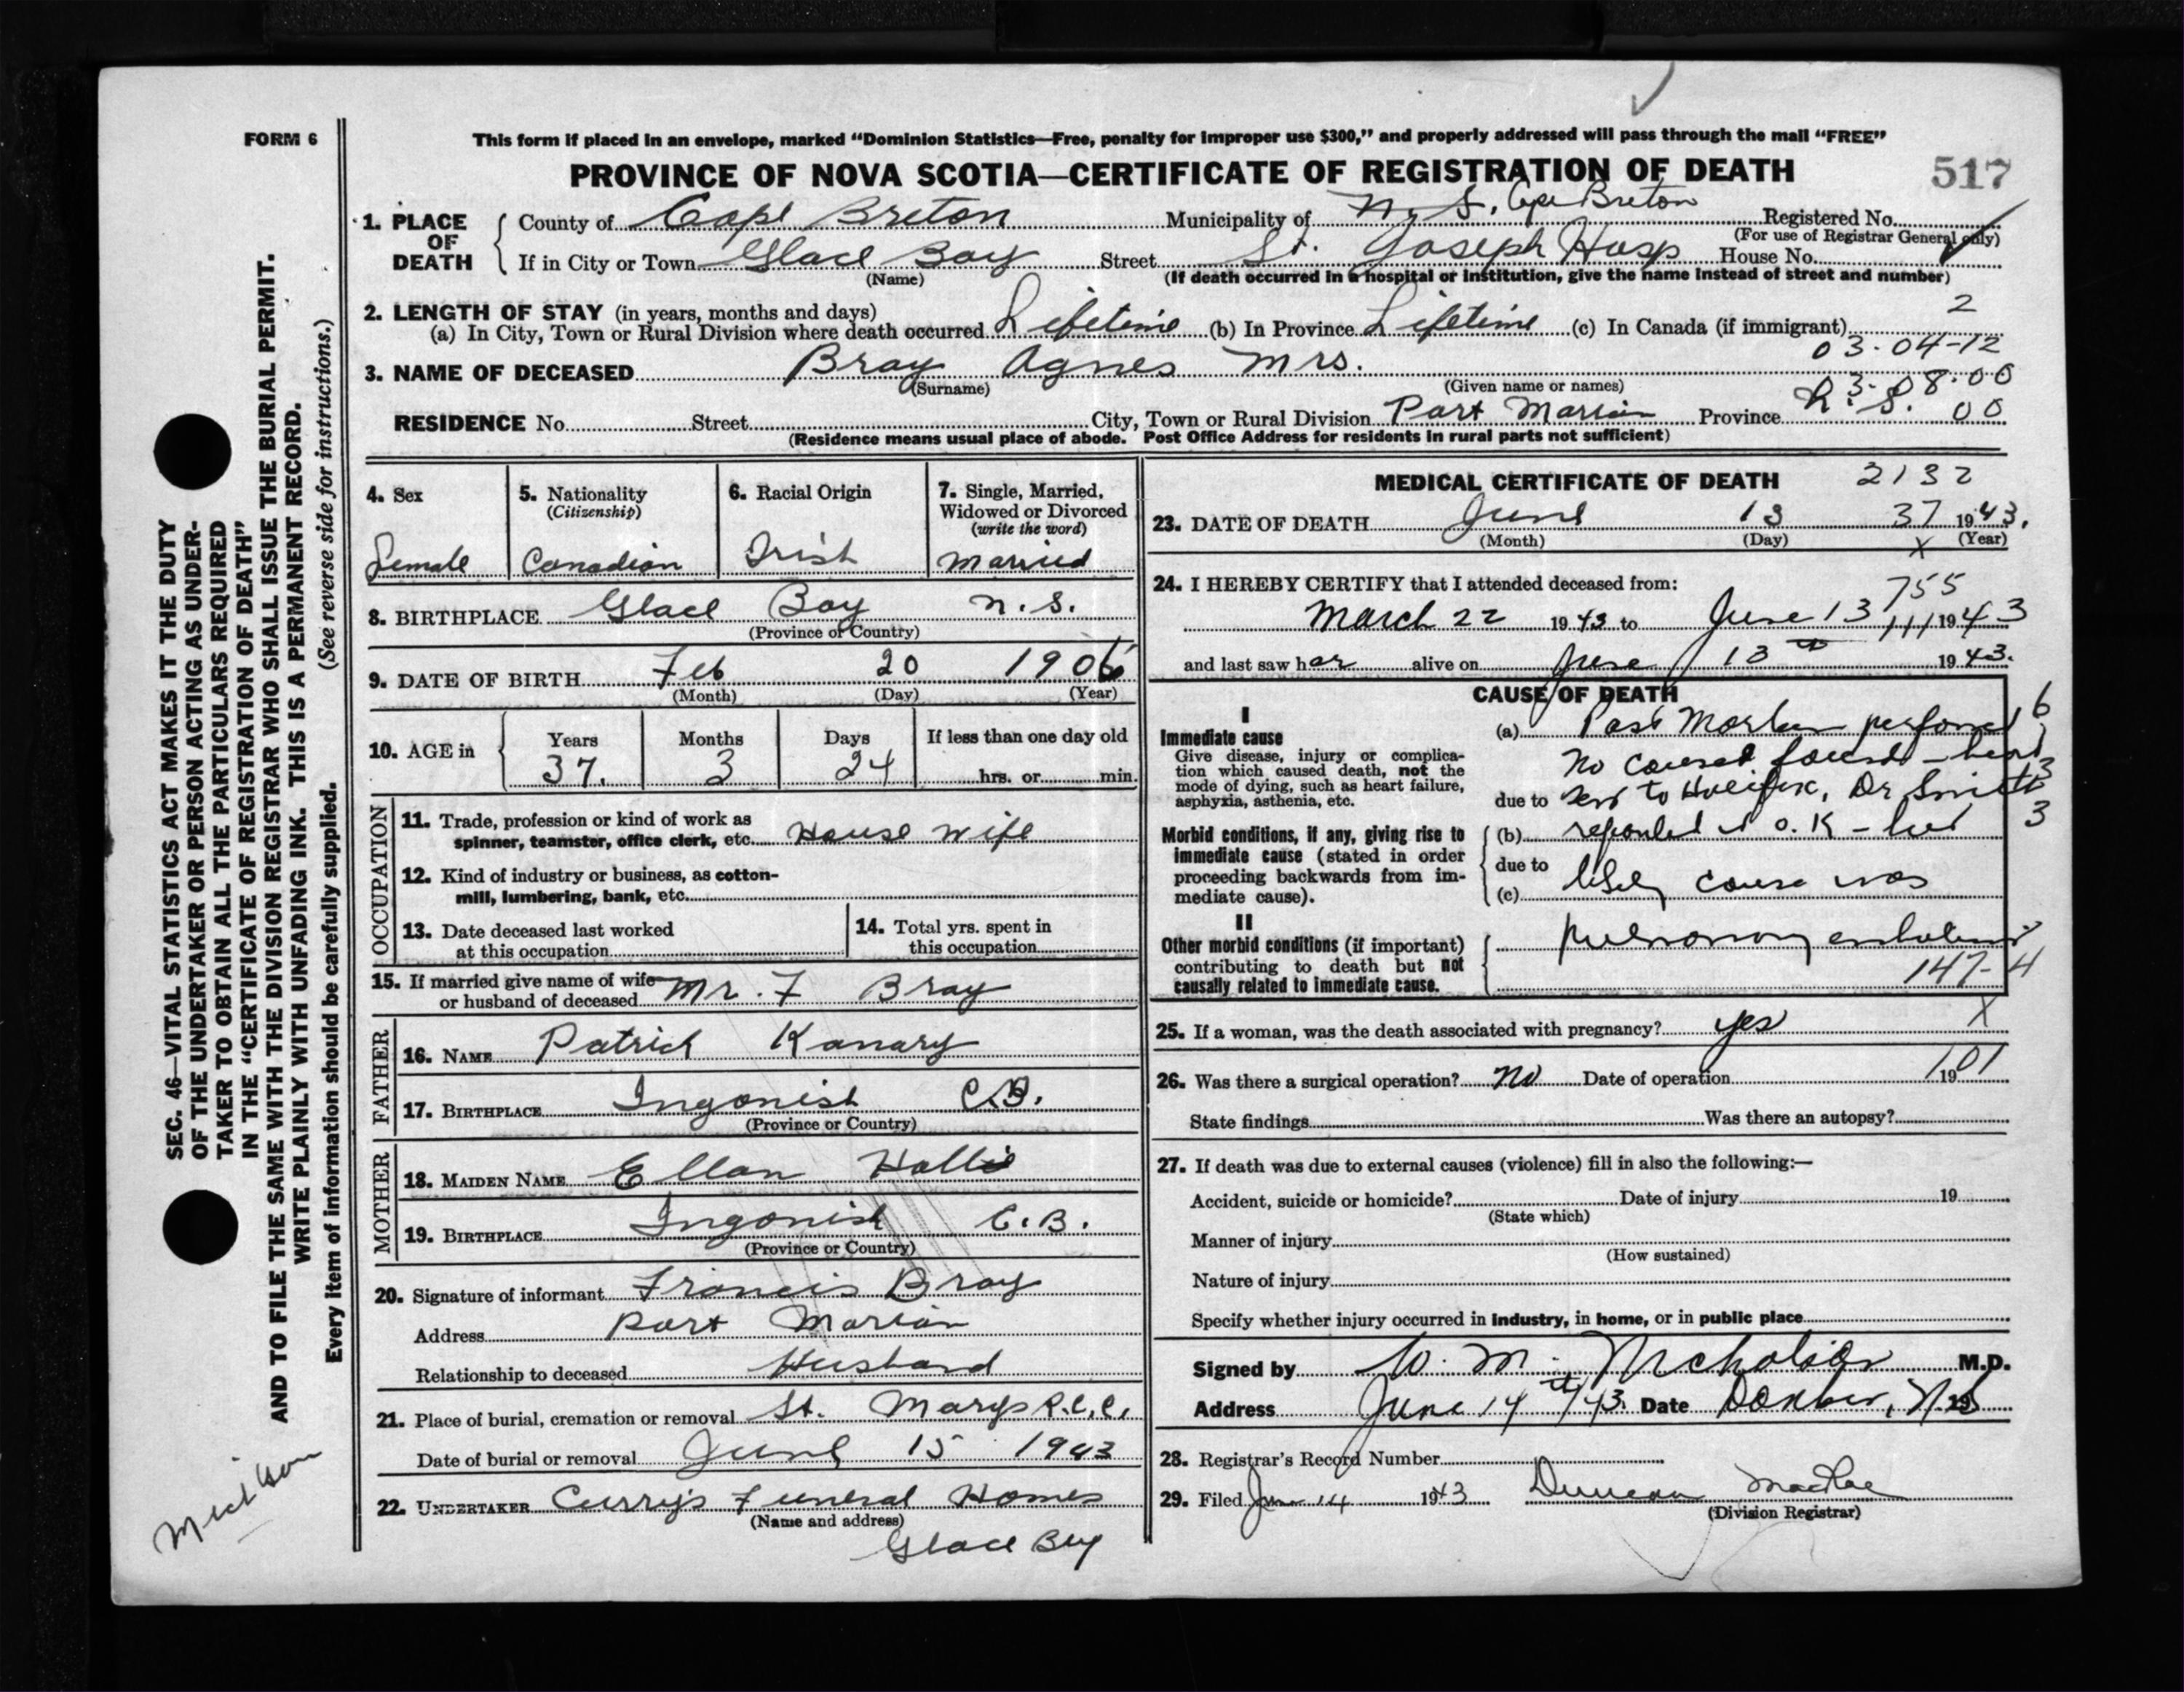 FORM 6
This form if placed in an envelope, marked “Dominion Statistics—Free, penalty for improper use $300,” and properly addressed will pass through the mail “FREE”
PROVINCE OF NOVA SCOTIA—CERTIFICATE OF REGISTRATION OF DEATH
517
1. PLACE OF DEATH
County of Cape Breton Municipality of N. S. Cape Breton Registered No.
(For use of Registrar General only)
If in City or Town Glace Bay Street St. Joseph Hosp House No.
(Name) (If death occurred in a hospital or institution, give the name instead of street and number)
2. LENGTH OF STAY (in years, months and days) 2
(a) In City, Town or Rural Division where death occurred Lifetime (b) In Province Lifetime (c) In Canada (if immigrant)
03-04-12
3. NAME OF DECEASED Bray Agnes Mrs.
(Surname) (Given name or names)
03-08-00
RESIDENCE No. Street City, Town or Rural Division Port Marian Province N. S. 00
(Residence means usual place of abode. Post Office Address for residents in rural parts not sufficient)
4. Sex
Female
5. Nationality
(Citizenship)
Canadian
6. Racial Origin
Irish
7. Single, Married,
Widowed or Divorced
(write the word)
Married
8. BIRTHPLACE Glace Bay N. S.
(Province or Country)
9. DATE OF BIRTH Feb 20 1906
(Month) (Day) (Year)
10. AGE in
Years Months Days If less than one day old
37. 3 24 hrs. or min.
OCCUPATION
11. Trade, profession or kind of work as
spinner, teamster, office clerk, etc. House Wife
12. Kind of industry or business, as cotton-
mill, lumbering, bank, etc.
13. Date deceased last worked
at this occupation
14. Total yrs. spent in
this occupation
15. If married give name of wife
or husband of deceased Mr. F Bray
FATHER
16. NAME Patrick Kanary
17. BIRTHPLACE Ingonish C.B.
(Province or Country)
MOTHER
18. MAIDEN NAME Ellan
19. BIRTHPLACE Ingonish C. B.
(Province or Country)
20. Signature of informant Francis Bray
Address Port Marian
Relationship to deceased Husband
21. Place of burial, cremation or removal St. Marys R.C.C.
Date of burial or removal June 15 1943
22. UNDERTAKER Curry's Funeral Homes
(Name and address)
Glace Bay
MEDICAL CERTIFICATE OF DEATH 2132
23. DATE OF DEATH June 13 37 1943.
(Month) (Day) X (Year)
24. I HEREBY CERTIFY that I attended deceased from:
755
March 22 1943 to June 13 1943
and last saw her alive on June 13th 1943.
CAUSE OF DEATH
I
Immediate cause
Give disease, injury or complica-
tion which caused death, not the
mode of dying, such as heart failure,
asphyxia, asthenia, etc.
Morbid conditions, if any, giving rise to
immediate cause (stated in order
proceeding backwards from im-
mediate cause).
II
Other morbid conditions (if important)
contributing to death but not
causally related to immediate cause.
(a) Post Mortem performed 6
No caused found - heart
due to sent to Halifax, Dr Smith 3
(b) reported it O. K - 3
due to likely cause was
(c)
pulmonary embolism
147-4
25. If a woman, was the death associated with pregnancy? yes X
26. Was there a surgical operation? No Date of operation 1901
State findings Was there an autopsy?
27. If death was due to external causes (violence) fill in also the following:—
Accident, suicide or homicide? Date of injury 19
(State which)
Manner of injury
(How sustained)
Nature of injury
Specify whether injury occurred in industry, in home, or in public place
Signed by W. M. Nicholson M.D.
Address June 14th/43. Date N.S
28. Registrar's Record Number
29. Filed June 14 1943 Duncan MacRae
(Division Registrar)
SEC. 46—VITAL STATISTICS ACT MAKES IT THE DUTY
OF THE UNDERTAKER OR PERSON ACTING AS UNDER-
TAKER TO OBTAIN ALL THE PARTICULARS REQUIRED
IN THE “CERTIFICATE OF REGISTRATION OF DEATH”
AND TO FILE THE SAME WITH THE DIVISION REGISTRAR WHO SHALL ISSUE THE BURIAL PERMIT.
WRITE PLAINLY WITH UNFADING INK. THIS IS A PERMANENT RECORD.
Every item of information should be carefully supplied. (See reverse side for instructions.)